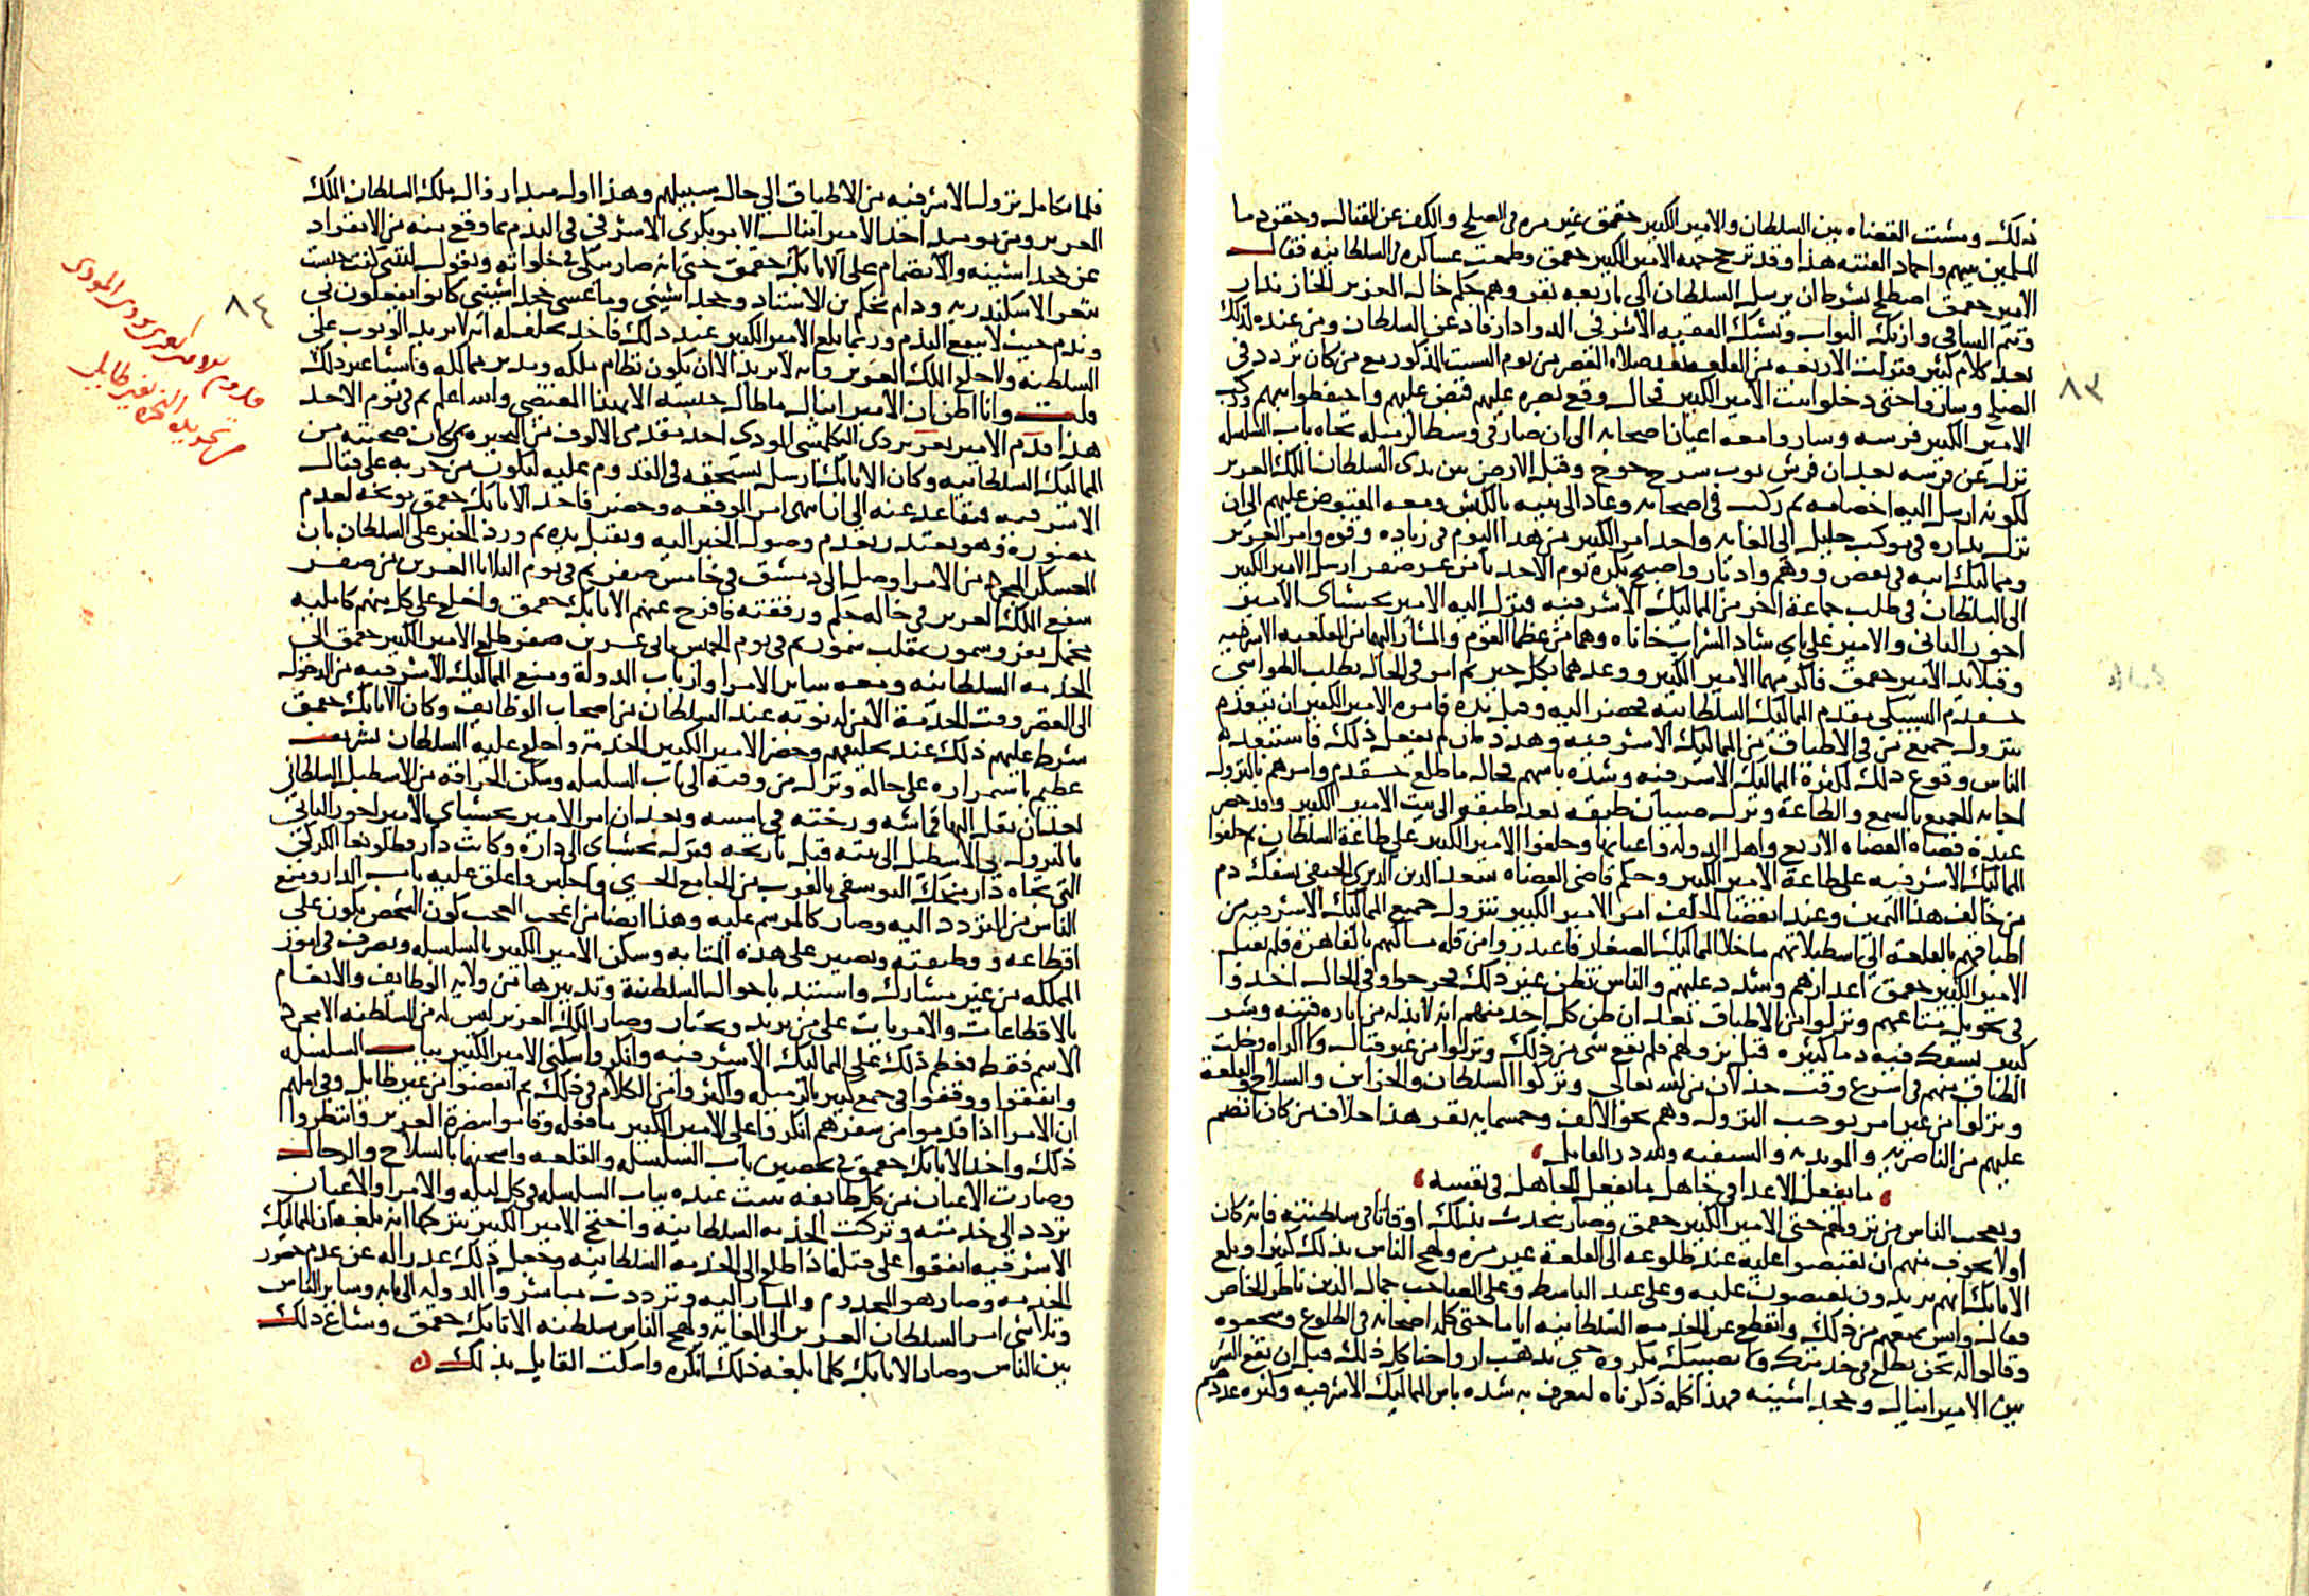 ذلك ومشت القضاه بين السلطان والامير الكبير جقمق غير مره في الصلح والكف عن القتال وحقن دما
المسلمين بينهم واخماد الفتنه هذا وقد ترجح جهه الامير الكبير جقمق وطمعت عساكره في السلطانيه فقال
الامير جقمق اصطلح بشرط ان يرسل السلطان الي باربعه نفر وهم جكم خال العزيز الخازندار
وتنم الساقي وازبك البواب ويشبك الفقيه الاشرفي الدوادار فاذعن السلطان ومن عنده لذلك
بعد كلام كثير فنزلت الاربعه من القلعه بعد صلاه العصر من يوم السبت المذكور مع من كان تردد في
الصلح وساروا حتى دخلوا بيت الامير الكبير فحال وقع بصره عليهم قبض عليهم واحتفظوا بهم وركب
الامير الكبير فرسه وسار وامعه اعيان اصحابه الى ان صار في وسط الرميله تجاه باب السلسله
نزل عن فرسه بعد ان فرش ثوب سرح جوخ وقبل الارض بين يدي السلطان الملك العزيز
لكونه ارسل اليه اخصامه ثم ركب في اصحابه وعاد الى بيته بالكبش ومعه المقبوض عليهم الى ان
نزل بداره في موكب جليل الى الغايه واخذ امر الكبير من هذا اليوم في زياده وقوه وامر العزيز
ومماليك ابيه في نقص ووهم وادبار واصبح بكره يوم الاحد ثامن عشر صفر ارسل الامير الكبير
الى السلطان في طلب جماعة اخر من المماليك الاشرفيه فنزل اليه الامير يخشباي الامير
اخور الثاني والامير علي باي شاد الشراب خاناه وهما من عظما القوم والمشار اليهما من القلعه الاشرفيه
وقبلا يد الامير جقمق فاكرمهما الامير الكبير ووعدهما بكل خير ثم امر في الحال بطلب الطواشي
خشقدم اليشبكي مقدم المماليك السلطانيه فحضر اليه وقبل يده فامره الامير الكبير ان يتوجه
بنزول جميع من في الاطباق من المماليك الاشرفيه وهدده ان لم يفعل ذلك فاستبعد
الناس وقوع ذلك لكثرة المماليك الاشرفيه وشده باسهم فحال ما طلع خشقدم وامرهم بالنزول
اجابه الجميع بالسمع والطاعة ونزل صبيان طبقه بعد طبقه الى بيت الامير الكبير وقد حضر
عنده قضاه القضاه الاربع واهل الدوله واعيانها وحلفوا الامير الكبير على طاعة السلطان ثم حلفوا
المماليك الاشرفيه على طاعة الامير الكبير وحكم قاضي القضاه سعد الدين الديري الحنفي بسفك دم
من خالف هذا اليمين وعند انقضا الحلف امر الامير الكبير بنزول جميع المماليك الاشرفيه من
اطباقهم بالقلعه الى اسطبلاتهم ما خلا المماليك الصغار فاعتذروا من قله مساكنهم بالقاهرة فلم يقبل
الامير الكبير جقمق اعذارهم وشدد عليهم والناس تظن غير ذلك فخرجوا وفي الحال اخذوا
في تحويل متاعهم ونزلوا من الاطباق بعد ان ظن كل احد منهم انه لابد له من اثاره فتنه وشر
كبير يسفك فيه دما كثيره قبل نزولهم فلم يقع شي من ذلك ونزلوا من غير قتال ولا اكراه وخلت
الطباق منهم في اسرع وقت خذلان من الله تعالى وتركوا السلطان والخزاين والسلاح والقلعة
ونزلوا من غير امر يوجب النزول وهم نحو الالف وخمسمايه نفر هذا خلاف من كان انضم
عليهم من الناصريه والمويديه والسيفيه ولله در القايل
ما يفعل الاعدا في جاهل ما يفعل الجاهل في نفسه
وتعجب الناس من نزولهم حتى الامير الكبير جقمق وصار يتحدث بذلك اوقاتا في سلطنته فانه كان
اولا يخوف منهم ان يقبضوا عليه عند طلوعه الى القلعة غير مره ولهج الناس بذلك كثيرا وبلغ
الاتابك انهم يريدون يقبضون عليه وعلى عبد الباسط وعلى الصاحب جمال الدين ناظر الخاص
فقال وايش يمنعهم من ذلك وانقطع عن الخدمه السلطانيه اياما حتى كلمه اصحابه في الطلوع وشجعوه
وقالوا له نحن نطلع في خدمتك ولا يصيبك مكروه حتى تذهب ارواحنا كل ذلك قبل ان يقع الشر
بين الامير اينال وخجداشيته فهذا كله ذكرناه لتعرف به شده باس المماليك الاشرفيه وكثره عددهم
٨٣
فلما تكامل نزول الاشرفيه من الاطباق الي حال سبيلهم وهذا اول مبدا زوال ملك السلطان الملك
العزيز ومن يوميذ اخذ الامير اينال الابوبكري الاشرفي في الندم بما وقع منه من الانفراد
عن خجداشيته والانضمام على الاتابك جقمق حتى انه صار يبكي في خلواته ويقول ليتني كنت حبست
بثغر الاسكندريه ودام تحكم بن الاستاد وخجداشيتي وما عسى خجداشيتي كانوا يفعلون بي
وندم حيث لا ينفع الندم وربما بلغ الامير الكبير عنه ذلك فاخذ يحلف له انه لا يريد الوثوب على
السلطنه ولا خلع الملك العزيز وانه لا يريد الا ان يكون نظام ملكه ومدبر مماليكه واشيا غير ذلك
قلت وانا اظن ان الامير اينال ما طال حبسه الا لهذا المقتضي والله اعلم ثم في يوم الاحد
هذا قدم الامير تغري بردي البكلمشي المودي احد مقدمي الالوف من البحيره وكان صحبته من
المماليك السلطانيه وكان الاتابك ارسل يستحثه في القدوم عليه ليكون من حزبه على قتال
الاشرفيه فتقاعد عنه الى ان انتهى امر الوقعه وحضر فاخذ الاتابك جقمق يوبخه لعدم
حضوره وهو يعتذر بعدم وصول الخبر اليه ويقبل يده ثم ورد الخبر على السلطان بان
العسكر المجرد من الامرا وصل الى دمشق في خامس صفر ثم في يوم الثلاثا العشرين من صفر
شفع الملك العزيز في خاله جكم ورفقته فافرج عنهم الاتابك جقمق واخلع على كل منهم كامليه
مخمل بفرو سمور بمقلب سمور ثم في يوم الخميس ثاني عشرين صفر طلع الامير الكبير جقمق الى
الخدمه السلطانيه ومعه ساير الامرا وارباب الدولة ومنع المماليك الاشرفيه من الدخول
الى القصر وقت الخدمة الا من له نوبه عند السلطان من اصحاب الوظايف وكان الاتابك جقمق
شرط عليهم ذلك عند تحليفهم وحضر الامير الكبير الخدمة واخلع عليه السلطان تشريف
عظيم باستمراره على حاله ونزل من وقته الى باب السلسله وسكن الحراقه من الاسطبل السلطاني
بعد ان نقل اليها قماشه ورخته في امسه وبعد ان امر الامير يخشباي الامير اخور الثاني
بالنزول من الاسطبل الى بيته قبل تاريخه فنزل يخشباي الى داره وكانت دار قطلوبغا الكركي
التي تجاه دار منجك اليوسفي بالقرب من الجامع الحسني واجلس واغلق عليه باب الدار ومنع
الناس من التردد اليه وصار كالمرسم عليه وهذا ايضا من اعجب العجب كون الشخص يكون على
اقطاعه ووظيفته ويصير على هذه المثابه وسكن الامير الكبير بالسلسله وتصرف في امور
المملكه من غير مشارك واستبد باحوال السلطنة وتدبيرها من ولايه الوظايف والانعام
بالاقطاعات والامريات على من يريد ويختار وصار الملك العزيز ليس له من السلطنه الا مجرد
الاسم فقط فعظم ذلك على المماليك الاشرفيه وانكروا سكنى الامير الكبير بباب السلسله
واتفقوا ووقفوا في جمع كبير بالرميله واكثروا من الكلام في ذلك ثم انفضوا من غير طايل وفي املهم
ان الامرا اذا قدموا من سفرهم انكروا على الامير الكبير ما فعله وقاموا بنصرة العزيز فانتظروا
ذلك واخذ الاتابك جقمق في تحصين باب السلسله والقلعه واشحنها بالسلاح والرجال
وصارت الاعيان من كل طايفه تبيت عنده بباب السلسله في كل ليله والامرا والاعيان
تردد الى خدمته وتركت الخدمه السلطانيه واحتج الامير الكبير بتركها انه بلغه ان المماليك
الاشرفيه اتفقوا على قتله اذا طلع الى الخدمه السلطانيه وجعل ذلك عذرا له عن عدم حضور
الخدمه وصار هو المخدوم والمشار اليه وترددت مباشروا الدوله الى بابه وساير الناس
وتلاشى امر السلطان العزيز الى الغايه ولهج الناس بسلطنه الاتابك جقمق وشاع ذلك
بين الناس وصار الاتابك كلما بلغه ذلك انكره واسكت القايل بذلك
٨٤
قدوم الامير تغري بردي المودي
من تجريده البحيره بغير طايل